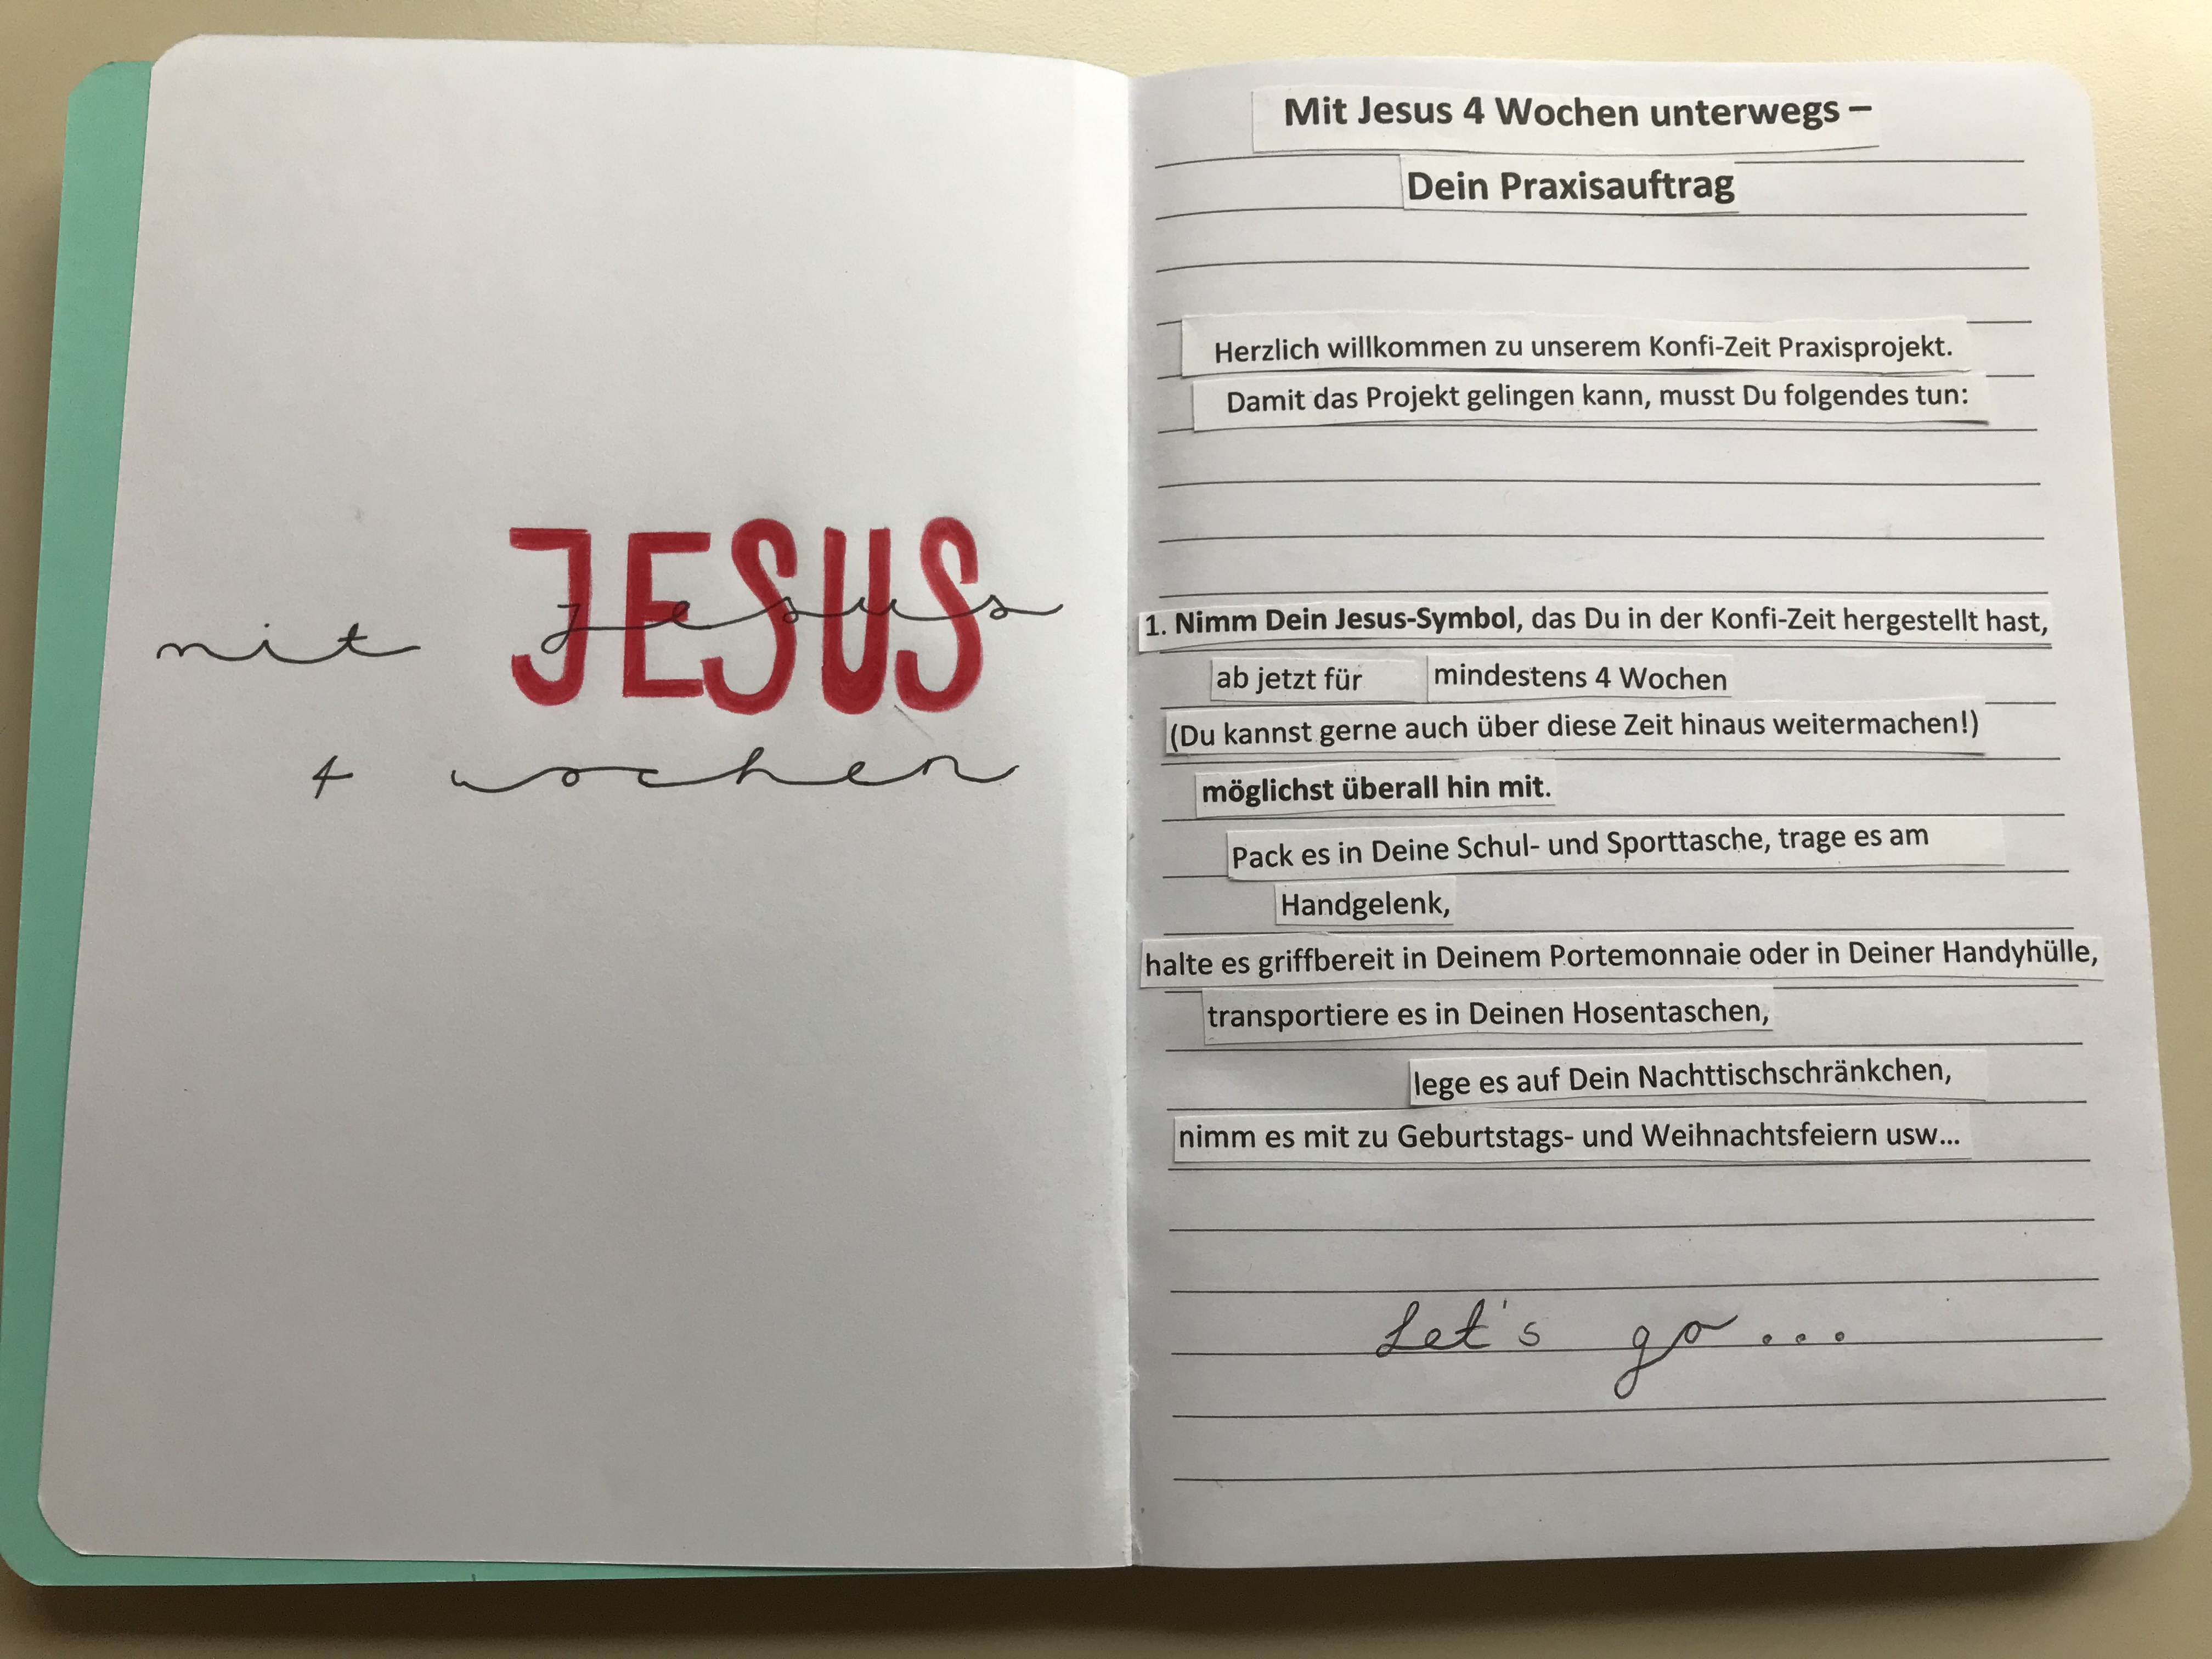 JESUS
mit Jesus
4 wochen
Mit Jesus 4 Wochen unterwegs –
Dein Praxisauftrag
Herzlich willkommen zu unserem Konfi-Zeit Praxisprojekt.
Damit das Projekt gelingen kann, musst Du folgendes tun:
1. Nimm Dein Jesus-Symbol, das Du in der Konfi-Zeit hergestellt hast,
ab jetzt für mindestens 4 Wochen
(Du kannst gerne auch über diese Zeit hinaus weitermachen!)
möglichst überall hin mit.
Pack es in Deine Schul- und Sporttasche, trage es am
Handgelenk,
halte es griffbereit in Deinem Portemonnaie oder in Deiner Handyhülle,
transportiere es in Deinen Hosentaschen,
lege es auf Dein Nachttischschränkchen,
nimm es mit zu Geburtstags- und Weihnachtsfeiern usw...
Let's go...